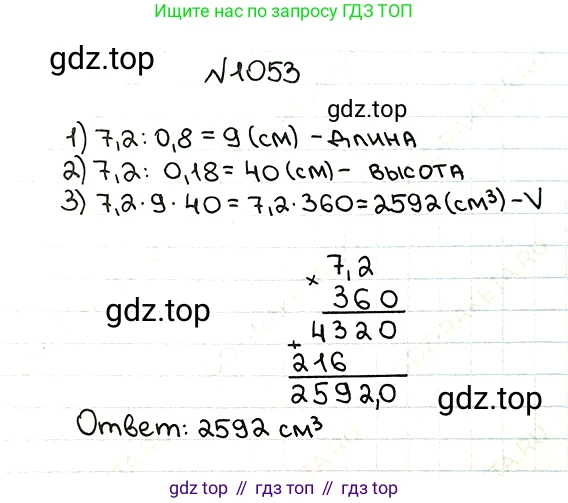 Ищите нас по запросу ГДЗ ТОП
gdz.top
№1053
gdz.top
1) 7,2 : 0,8 = 9 (см) - длина
2) 7,2 : 0,18 = 40 (см) - высота
3) 7,2 · 9 · 40 = 7,2 · 360 = 2592 (см³) - V
7,2
×
360
gdz.top
4320
+
216
2592,0
gdz.top
Ответ: 2592 см³
gdz.top // гдз.топ // гдз.top